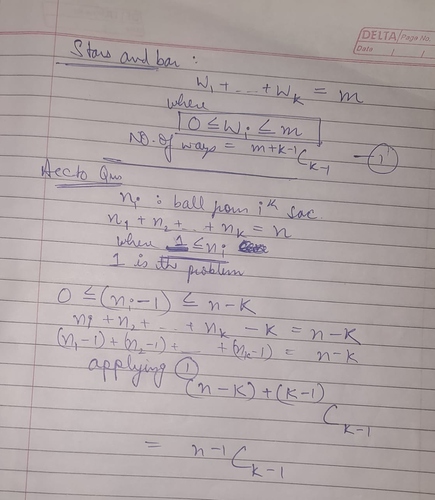 DELTA Page No.
Date / /
Stars and bar :
W₁ + ... + Wₖ = m
where
0 ≤ Wᵢ ≤ m
NO. of ways = ᵐ⁺ᵏ⁻¹Cₖ₋₁ — ①
Aecto Qns
nᵢ : ball from iᵗʰ sac
n₁ + n₂ + ... + nₖ = n
where 1 ≤ nᵢ
1 is the problem
0 ≤ (nᵢ-1) ≤ n-k
n₁ + n₂ + ... + nₖ - k = n-k
(n₁-1) + (n₂-1) + ... + (nₖ-1) = n-k
applying ①
⁽ⁿ⁻ᵏ⁾⁺⁽ᵏ⁻¹⁾Cₖ₋₁
= ⁿ⁻¹Cₖ₋₁